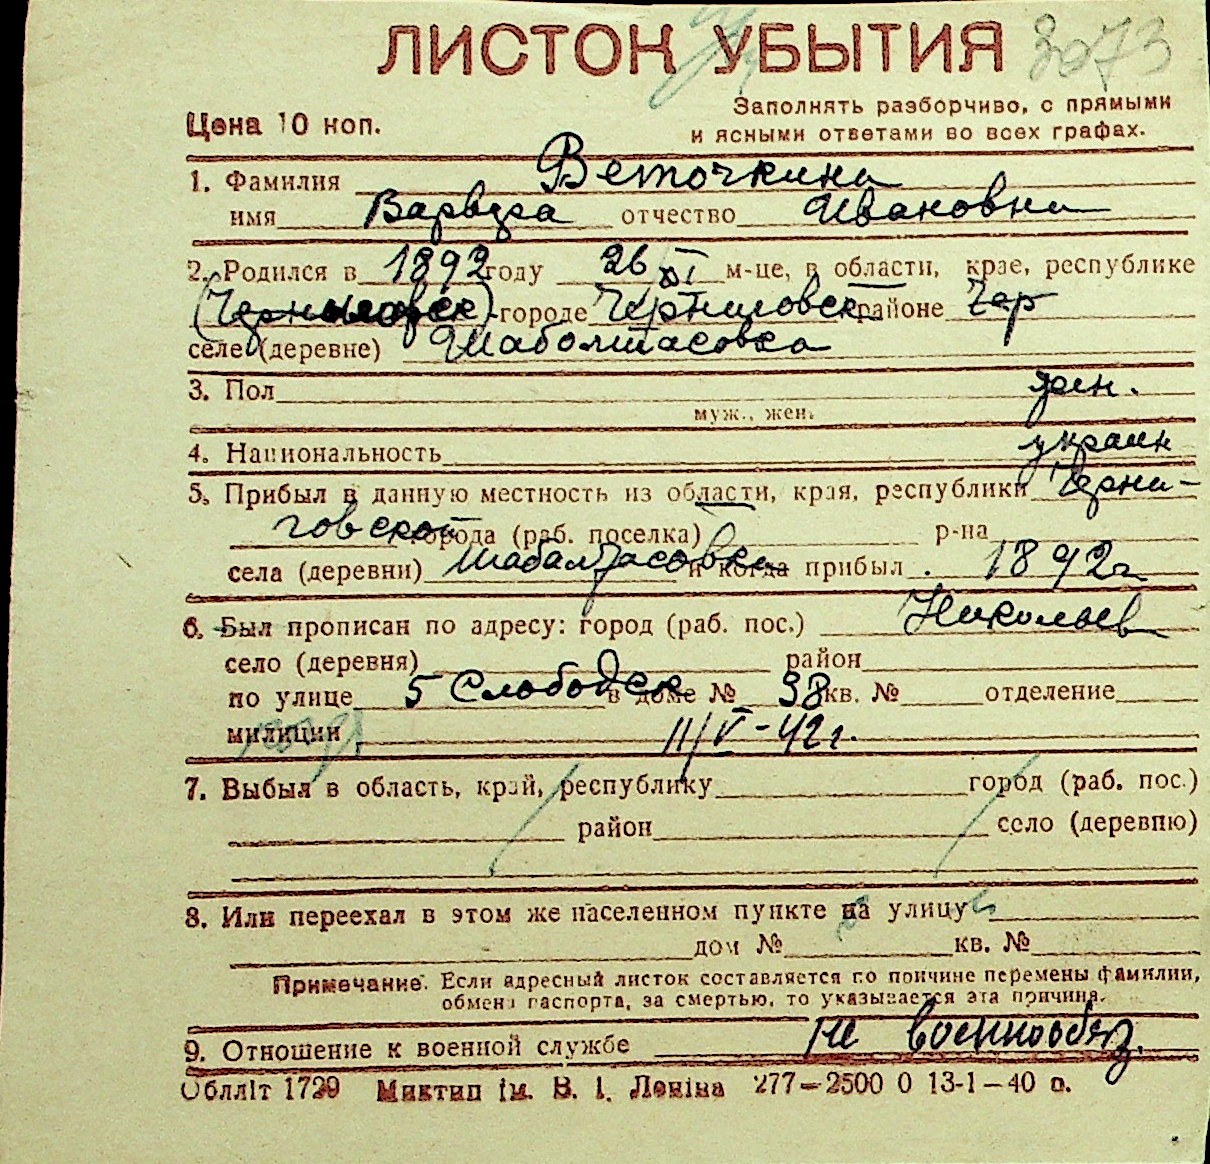 ЛИСТОК УБЫТИЯ 3073
Цена 10 коп.
Заполнять разборчиво, с прямыми
и ясными ответами во всех графах.
1. Фамилия Веточкина
имя Варвара отчество Ивановна
2. Родился в 1892 году 26/XI м-це, в области, крае, республике
городе Черниговск районе Чер
селе (деревне) Шаболтасовка
3. Пол жен.
муж., жен.
4. Национальность украин
5. Прибыл в данную местность из области, края, республики Черни-
говской города (раб. поселка) р-на
села (деревни) Шабалтасовка и когда прибыл . 1892 г
6. Был прописан по адресу: город (раб. пос.) Николаев
село (деревня) район
по улице 5 Слободск в доме № 38 кв. № отделение
милиции 11/V-42 г.
7. Выбыл в область, край, республику город (раб. пос.)
район село (деревню)
8. Или переехал в этом же населенном пункте на улицу
дом № кв. №
Примечание. Если адресный листок составляется по причине перемены фамилии,
обмена паспорта, за смертью, то указывается эта причина.
9. Отношение к военной службе не военнообяз.
Обллiт 1729 Миктип iм. В. I. Ленiна 277—2500 0 13-1—40 р.